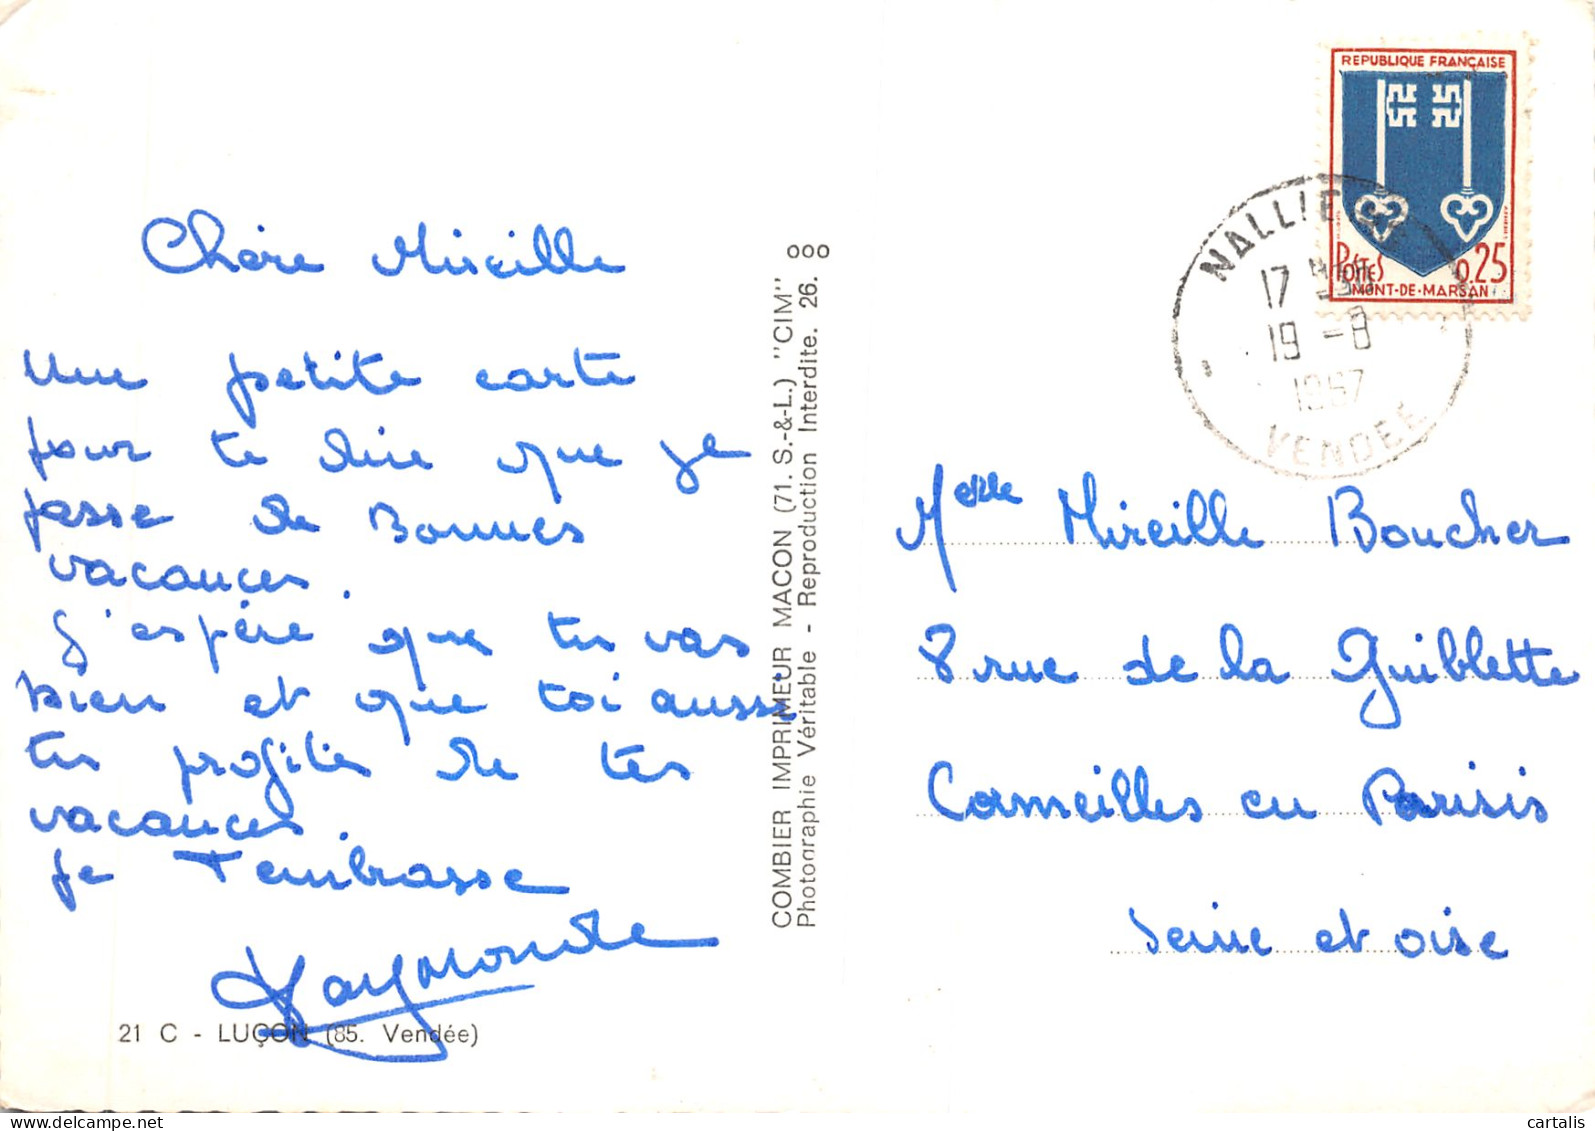 Chère Mireille
Une petite carte
pour te dire que je
passe de Bonnes
vacances.
J'espère que tu vas
bien et que toi aussi
tu profites de tes
vacances.
je t'embrasse
Raymonde
21 C - LUÇON (85. Vendée)
COMBIER IMPRIMEUR MACON (71. S.-&-L.) "CIM"
Photographie Véritable - Reproduction Interdite. 26.
REPUBLIQUE FRANÇAISE
POSTES 0,25
MONT-DE-MARSAN
17 H 30
19 - 8
1967
VENDEE
Melle Mireille Boucher
8 rue de la Guiblette
Cormeilles en Parisis
Seine et oise
cartalis